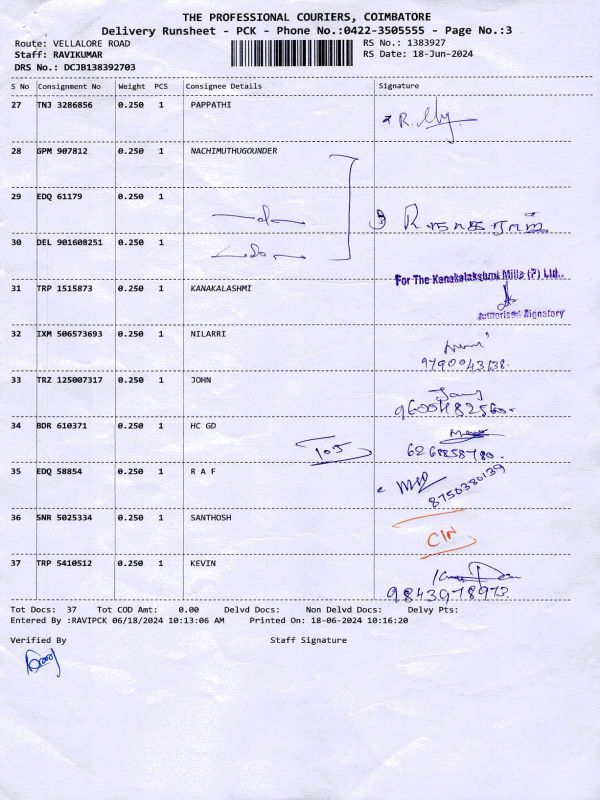 THE PROFESSIONAL COURIERS, COIMBATORE
Delivery Runsheet - PCK - Phone No.:0422-3505555 - Page No.:3
Route: VELLALORE ROAD RS No.: 1383927
Staff: RAVIKUMAR RS Date: 18-Jun-2024
DRS No.: DCJB138392703
S No Consignment No Weight PCS Consignee Details Signature
27 TNJ 3286856 0.250 1 PAPPATHI
28 GPM 907812 0.250 1 NACHIMUTHUGOUNDER
29 EDQ 61179 0.250 1
30 DEL 901608251 0.250 1
31 TRP 1515873 0.250 1 KANAKALASHMI
For The Kanakalakshmi Mills (P) Ltd.,
Authorised Signatory
32 IXM 506573693 0.250 1 NILARRI
9790043138.
33 TRZ 125007317 0.250 1 JOHN
9600482560.
34 BDR 610371 0.250 1 HC GD
105
6268858780.
35 EDQ 58854 0.250 1 R A F
8750380139
36 SNR 5025334 0.250 1 SANTHOSH
CIN
37 TRP 5410512 0.250 1 KEVIN
9843978973.
Tot Docs: 37 Tot COD Amt: 0.00 Delvd Docs: Non Delvd Docs: Delvy Pts:
Entered By :RAVIPCK 06/18/2024 10:13:06 AM Printed On: 18-06-2024 10:16:20
Verified By Staff Signature